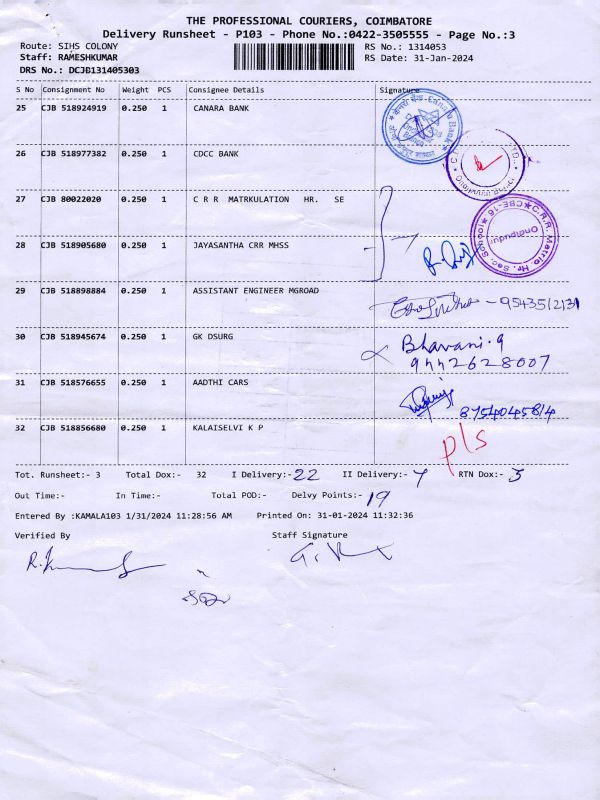 THE PROFESSIONAL COURIERS, COIMBATORE
Delivery Runsheet - P103 - Phone No.:0422-3505555 - Page No.:3
Route: SIHS COLONY
RS No.: 1314053
Staff: RAMESHKUMAR
RS Date: 31-Jan-2024
DRS No.: DCJB131405303
S No Consignment No Weight PCS Consignee Details Signature
25 CJB 518924919 0.250 1 CANARA BANK
Canara Bank
26 CJB 518977382 0.250 1 CDCC BANK
27 CJB 80022020 0.250 1 C R R MATRKULATION HR. SE
C.R.R. Matric Hr. Sec. School CBE-16
Ondipudur
28 CJB 518905680 0.250 1 JAYASANTHA CRR MHSS
29 CJB 518898884 0.250 1 ASSISTANT ENGINEER MGROAD
- 9543512131
30 CJB 518945674 0.250 1 GK DSURG
Bhavani.g
9442628007
31 CJB 518576655 0.250 1 AADTHI CARS
8754045814
32 CJB 518856680 0.250 1 KALAISELVI K P
pls
Tot. Runsheet:- 3 Total Dox:- 32 I Delivery:- 22 II Delivery:- 7 RTN Dox:- 3
Out Time:- In Time:- Total POD:- Delvy Points:- 19
Entered By :KAMALA103 1/31/2024 11:28:56 AM Printed On: 31-01-2024 11:32:36
Verified By Staff Signature